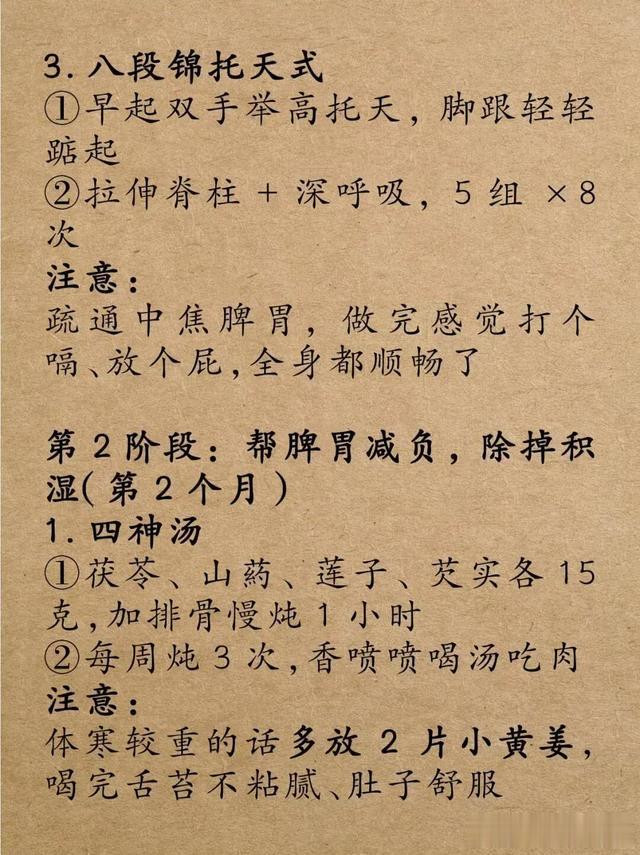 3. 八段锦托天式
①早起双手举高托天，脚跟轻轻
踮起
②拉伸脊柱 + 深呼吸，5 组 ×8
次
注意：
疏通中焦脾胃，做完感觉打个
嗝、放个屁,全身都顺畅了
第 2 阶段：帮脾胃减负，除掉积
湿(第 2 个月)
1. 四神汤
①茯苓、山药、莲子、芡实各 15
克,加排骨慢炖 1 小时
②每周炖 3 次,香喷喷喝汤吃肉
注意：
体寒较重的话多放 2 片小黄姜，
喝完舌苔不粘腻、肚子舒服